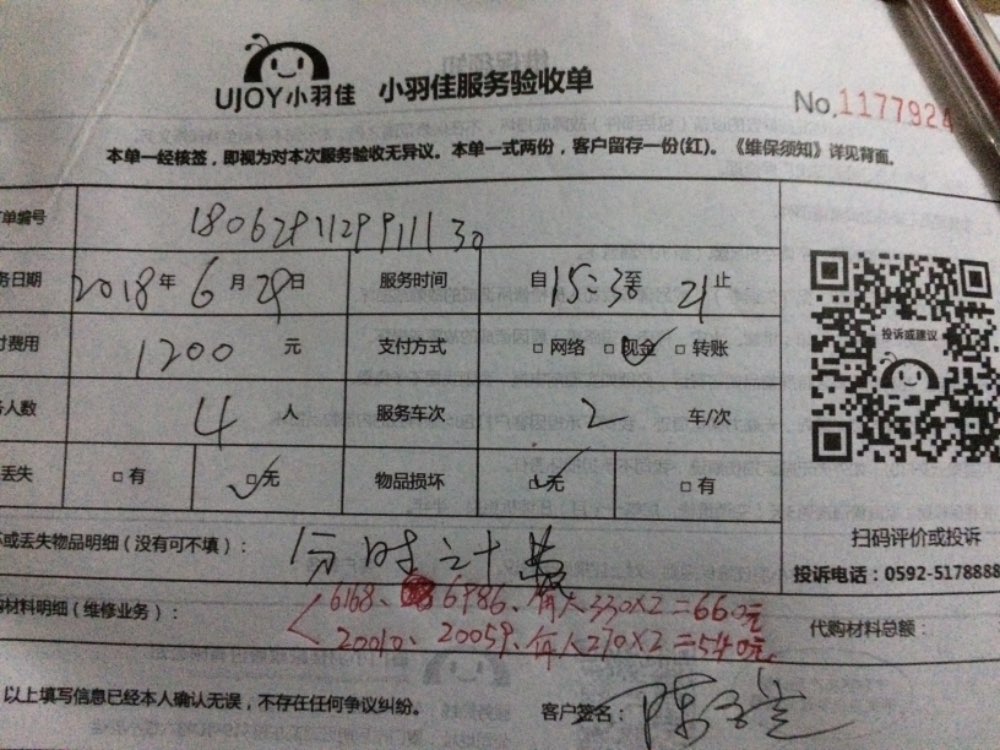 UJOY小羽佳 小羽佳服务验收单
No.1177924
本单一经核签，即视为对本次服务验收无异议。本单一式两份，客户留存一份(红)。《维保须知》详见背面。
单编号 180629112991130
务日期 2018年 6月 29日 服务时间 自15:3至 21止
付费用 1200 元 支付方式 □网络 □现金 □转账
务人数 4 人 服务车次 2 车/次
丢失 □有 □无 物品损坏 □无 □有
投诉或建议
扫码评价或投诉
投诉电话：0592-5178888
坏或丢失物品明细（没有可不填）： 分时计费
购材料明细（维修业务）： 6168、6986、每人330X2=660元
20010、20059、每人270X2=540元
代购材料总额：
以上填写信息已经本人确认无误，不存在任何争议纠纷。 客户签名：